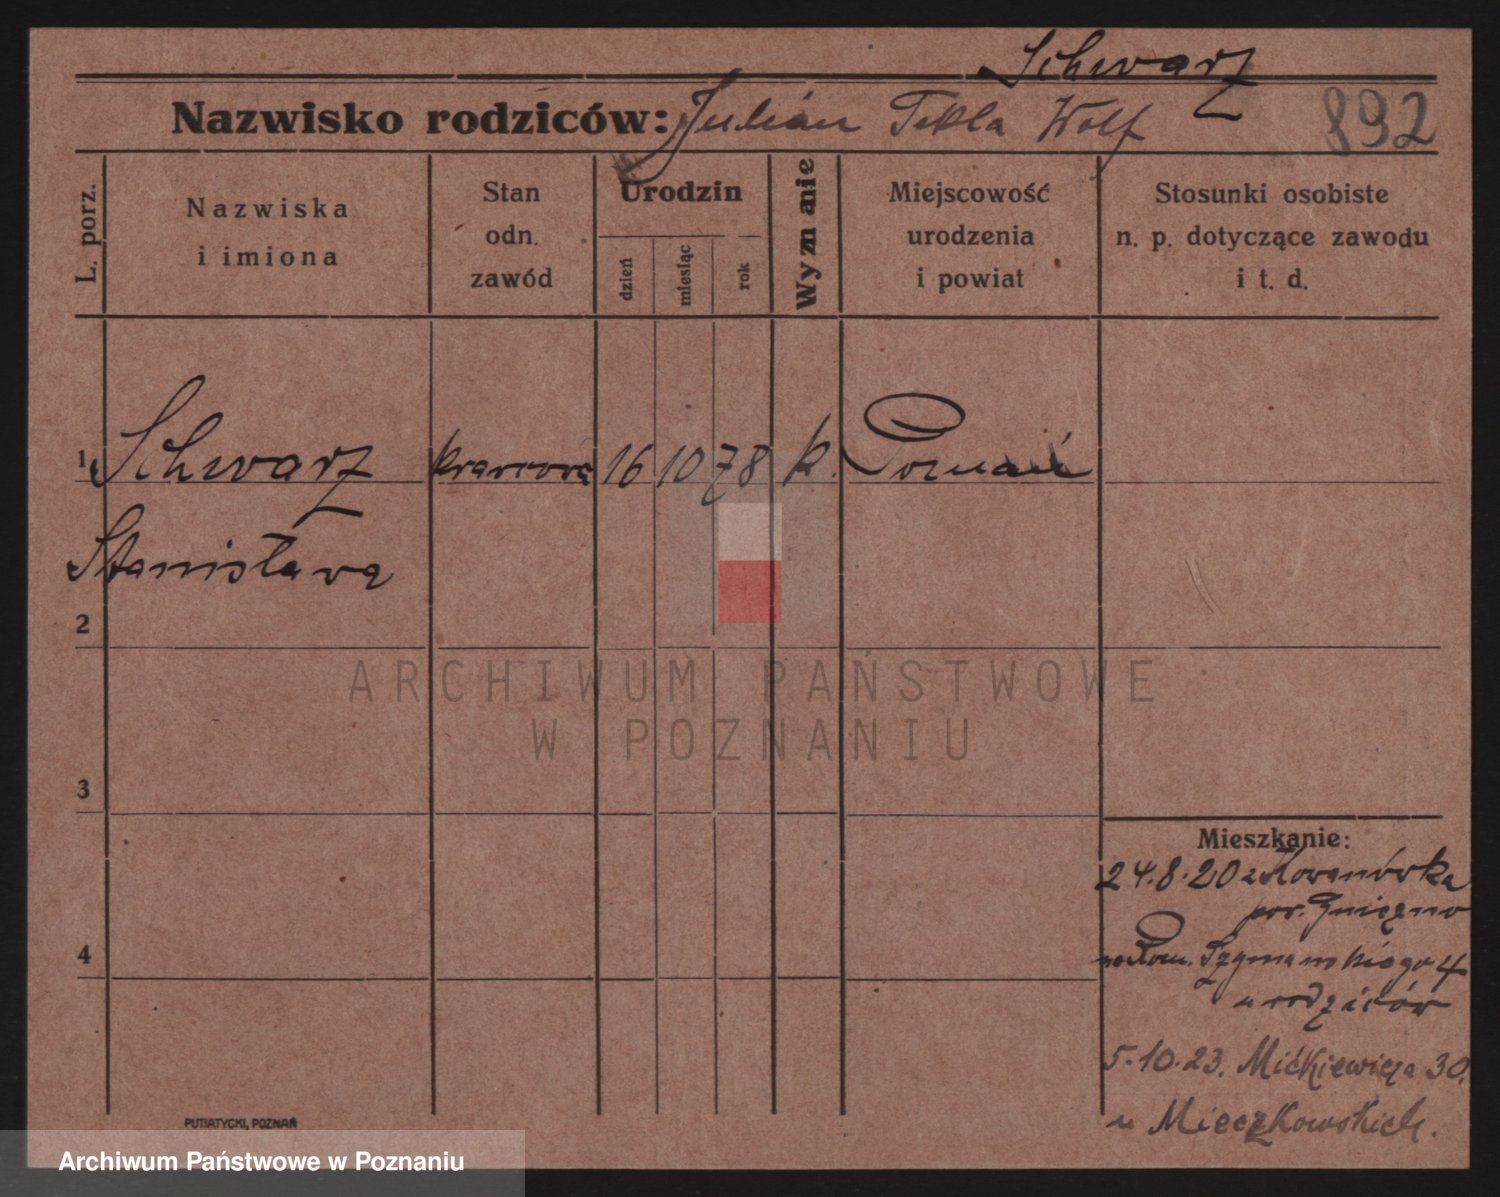 Schwarz
Nazwisko rodziców: Julian Tekla Wolf 892
L. porz.
Nazwiska
i imiona
Stan
odn.
zawód
Urodzin
dzień
miesiąc
rok
Wyznanie
Miejscowość
urodzenia
i powiat
Stosunki osobiste
n. p. dotyczące zawodu
i t. d.
1 Schwarz krawcowa 16 10 78 k. Poznań
Stanisława
2
ARCHIWUM PAŃSTWOWE
W POZNANIU
3
Mieszkanie:
24.8.20 z
pow. Gniezno
4
Szymańskiego 4
u rodziców
5.10.23. Mickiewicza 30.
u Mieczkowskich.
PUTIATYCKI, POZNAŃ
Archiwum Państwowe w Poznaniu